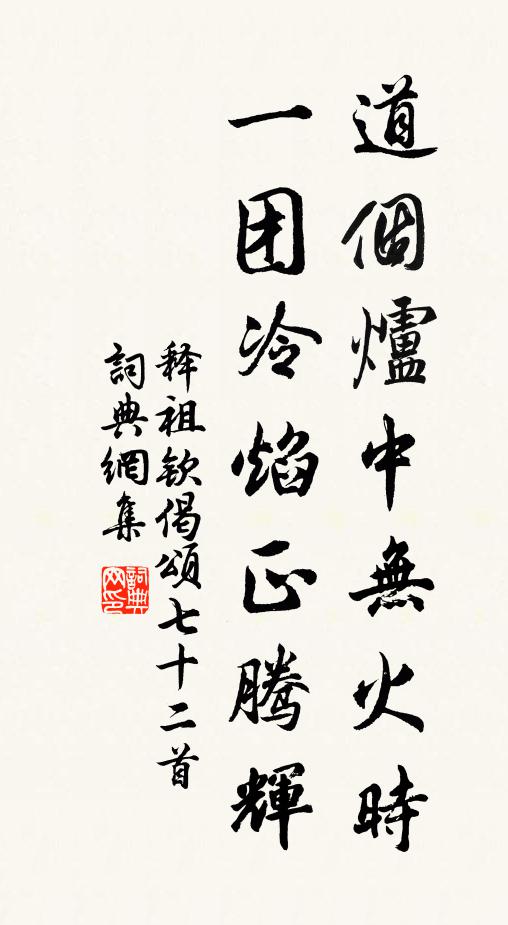 道個爐中無火時
一团冷焰正騰輝
释祖钦偈頌七十二首
詞典網集
詞典网印